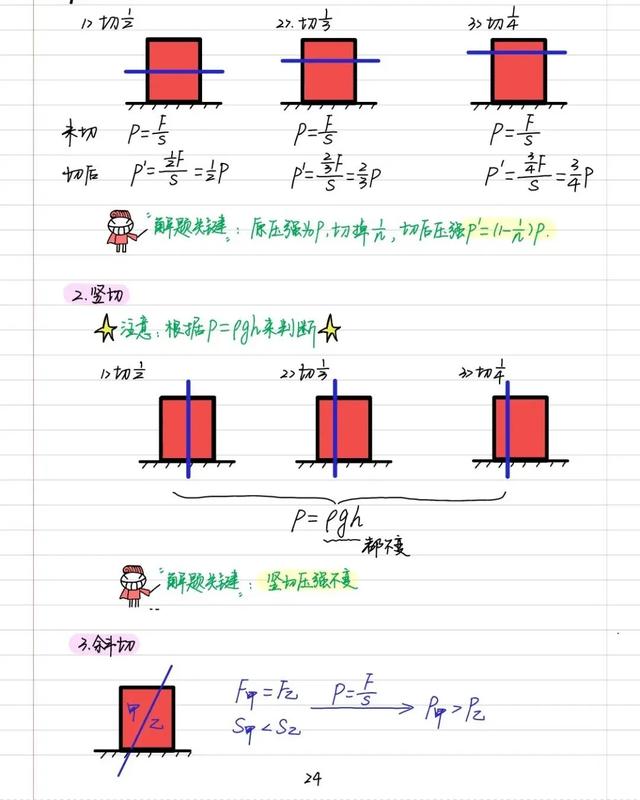 1> 切1/2 2>. 切1/3 3> 切1/4
未切 P=F/S P=F/S P=F/S
切后 P'=½F/S=½P P'=⅔F/S=⅔P P'=¾F/S=¾P
"解题关键": 原压强为P,切掉1/n,切后压强P'=(1-1/n)P.
2.竖切
注意:根据P=ρgh来判断
1>切1/2 2>切1/3 3>切1/4
P=ρgh
都不变
"解题关键": 竖切压强不变
3.斜切
甲 乙
F甲=F乙 P=F/S P甲>P乙
S甲<S乙
24